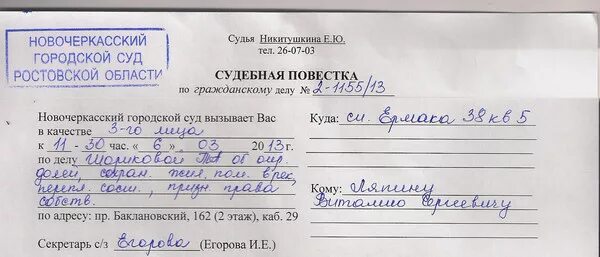 НОВОЧЕРКАССКИЙ
ГОРОДСКОЙ СУД
РОСТОВСКОЙ ОБЛАСТИ
Судья Никитушкина Е.Ю.
тел. 26-07-03
СУДЕБНАЯ ПОВЕСТКА
по гражданскому делу № 2-1155/13
Новочеркасский городской суд вызывает Вас
в качестве 3-го лица
к 11 - 30 час. « 6 » 03 2013 г.
по делу Шориковой об опр.
долей, сохран. жил. пом. в рес,
перепл. сост., призн. права
собств.
по адресу: пр. Баклановский, 162 (2 этаж), каб. 29
Секретарь с/з Егорова (Егорова И.Е.)
Куда: ул. Ермака 38 кв 5
Кому: Ляпину
Виталию Сергеевичу